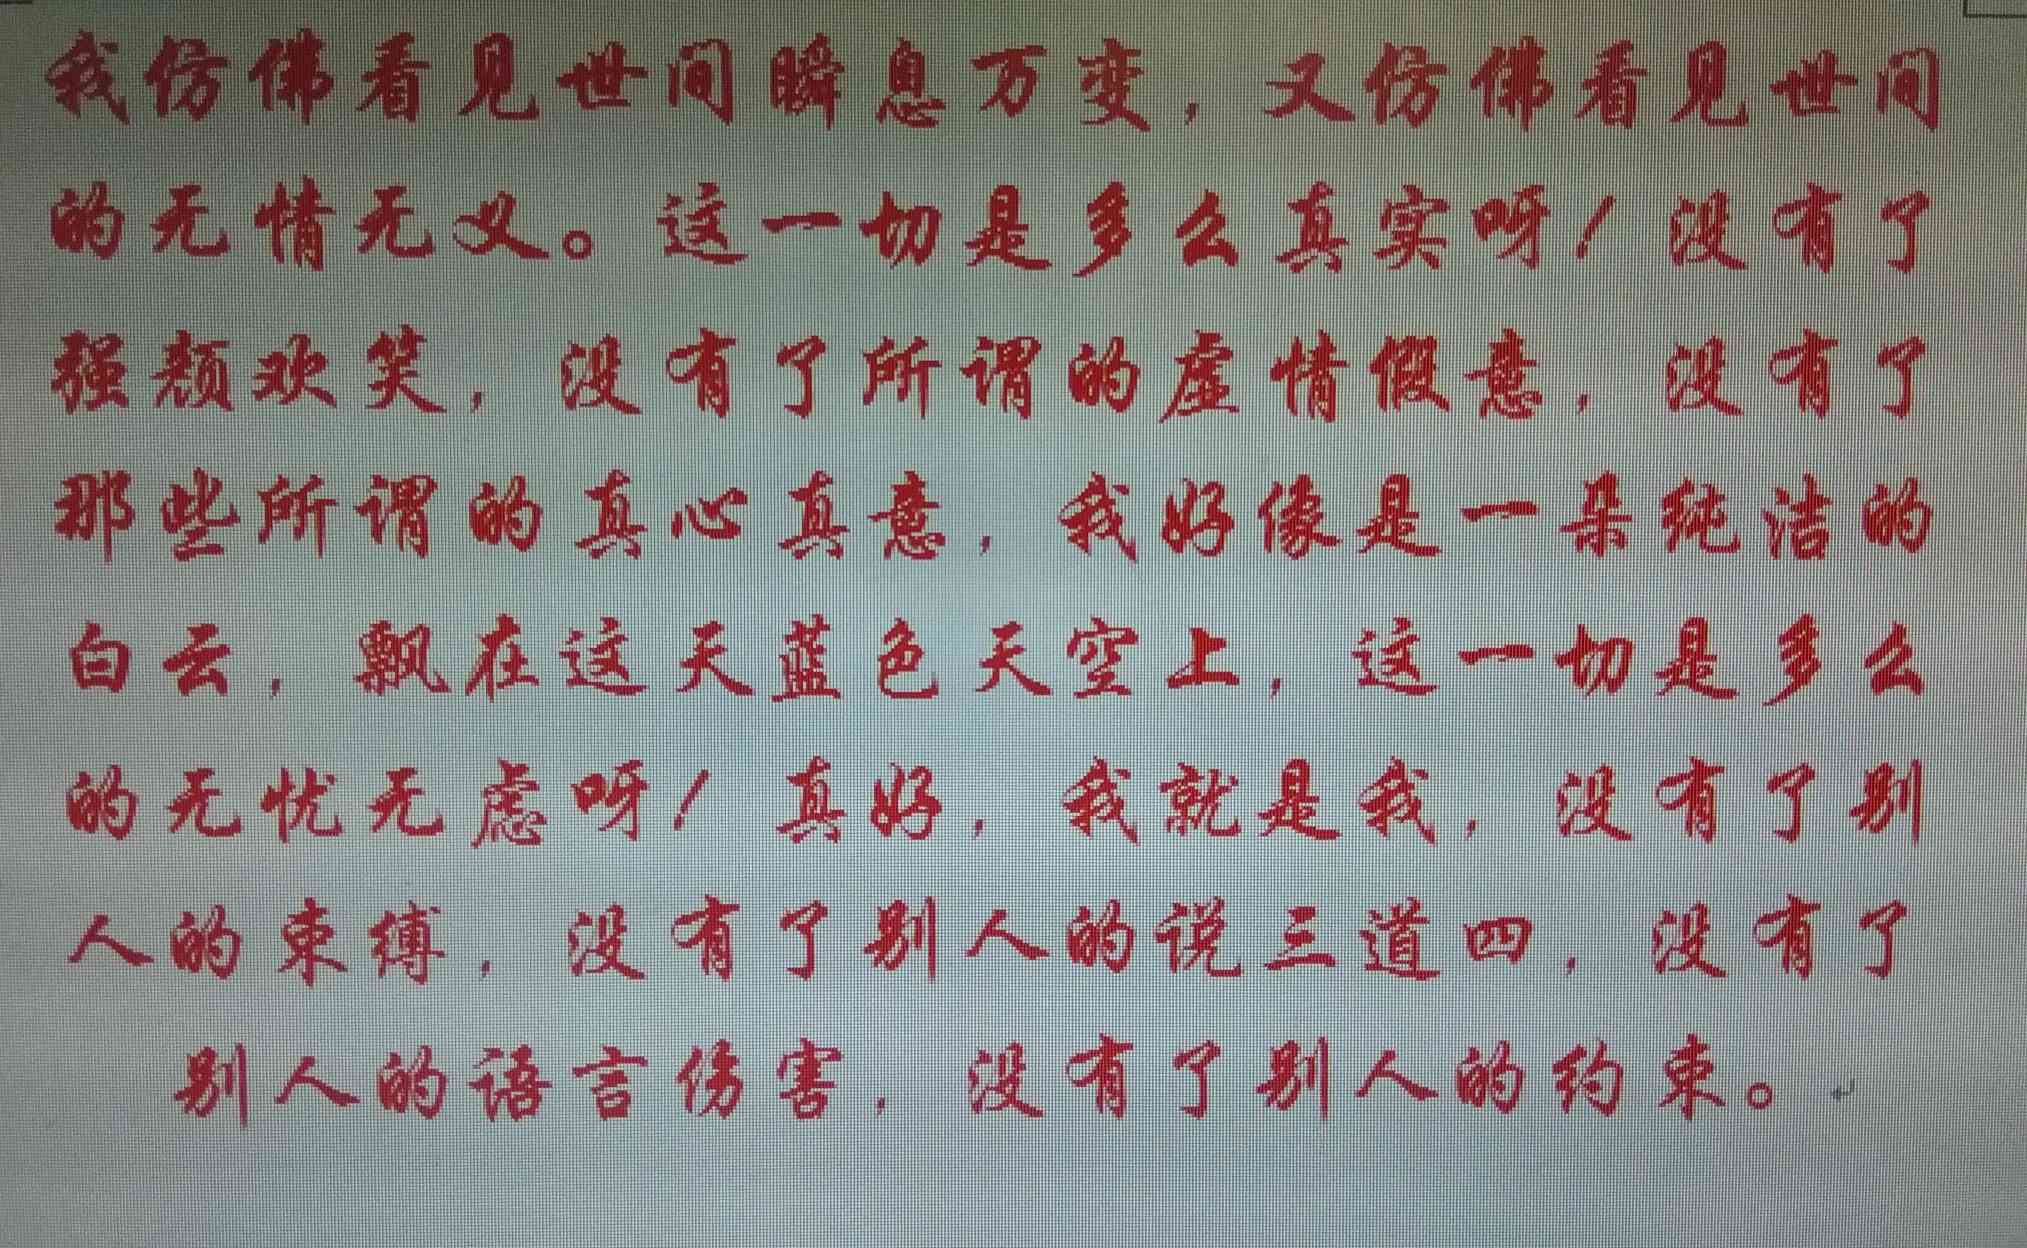 我仿佛看见世间瞬息万变，又仿佛看见世间
的无情无义。这一切是多么真实呀！没有了
强颜欢笑，没有了所谓的虚情假意，没有了
那些所谓的真心真意，我好像是一朵纯洁的
白云，飘在这天蓝色天空上，这一切是多么
的无忧无虑呀！真好，我就是我，没有了别
人的束缚，没有了别人的说三道四，没有了
别人的语言伤害，没有了别人的约束。